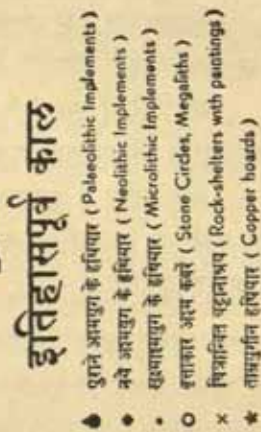 इतिहासपूर्व काल
पुराने अश्मयुग के हथियार ( Paleolithic Implements )
नवे अश्मयुग के हथियार ( Neolithic Implements )
सूक्ष्माश्मयुग के हथियार ( Microlithic Implements )
वृत्ताकार अश्म कबरें ( Stone Circles, Megaliths )
चित्रान्वित चट्टानाश्रय ( Rock-shelters with paintings )
ताम्रयुगीन हथियार ( Copper hoards )